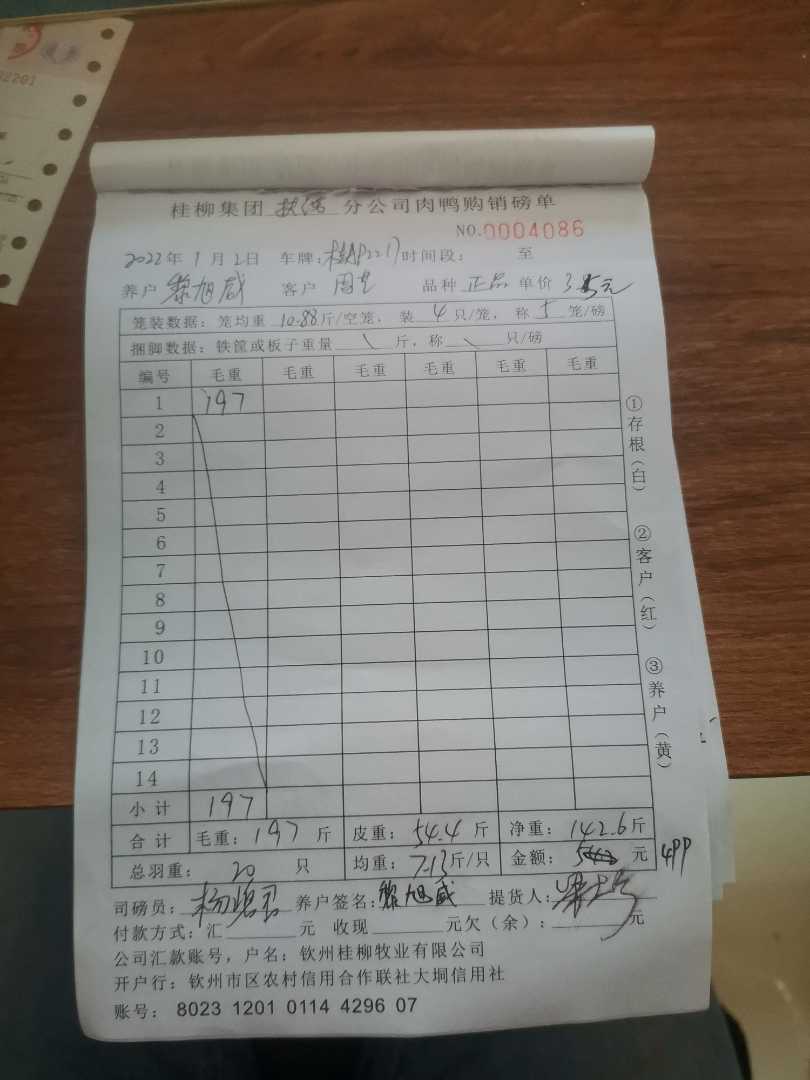 桂柳集团 分公司肉鸭购销磅单
NO.0004086
2022年1月2日 车牌: 时间段: 至
养户 黎旭威 客户 品种 正品 单价 元
笼装数据: 笼均重 10.88斤/空笼, 装 4 只/笼, 称 5 笼/磅
捆脚数据: 铁筐或板子重量 \ 斤, 称 \ 只/磅
编号 毛重 毛重 毛重 毛重 毛重 毛重
1 197
2
3
4
5
6
7
8
9
10
11
12
13
14
小计 197
合计 毛重: 197 斤 皮重: 54.4 斤 净重: 142.6斤
总羽重: 20 只 均重: 7.13斤/只 金额: 元 499
司磅员: 养户签名: 黎旭威 提货人:
付款方式: 汇 元 收现 元欠(余): 元
公司汇款账号, 户名: 钦州桂柳牧业有限公司
开户行: 钦州市区农村信用合作联社大垌信用社
账号: 8023 1201 0114 4296 07
①存根(白)
②客户(红)
③养户(黄)